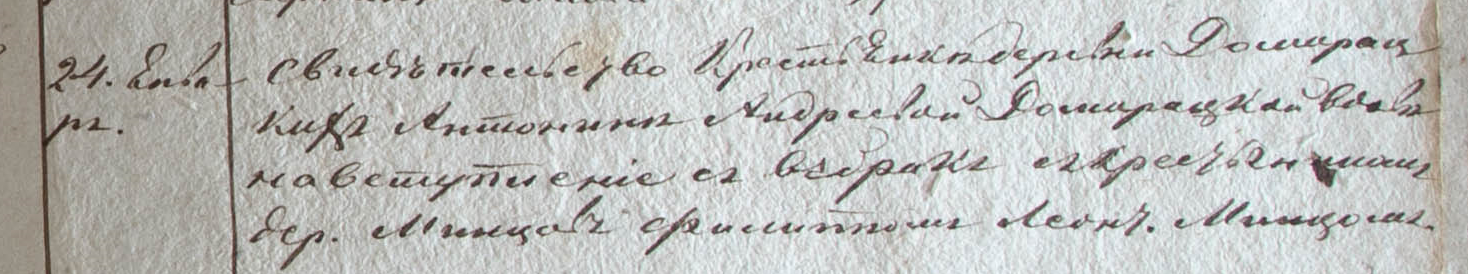 24. Янва- Свидѣтельство Крестьянкѣ деревни Домарац
ря. кихъ Антонинѣ Андреевой Домарацкой
на вступленіе ея въ бракъ съ крестьяниномъ
дер. Минцовъ Филиппомъ Леонт. Минцомъ.